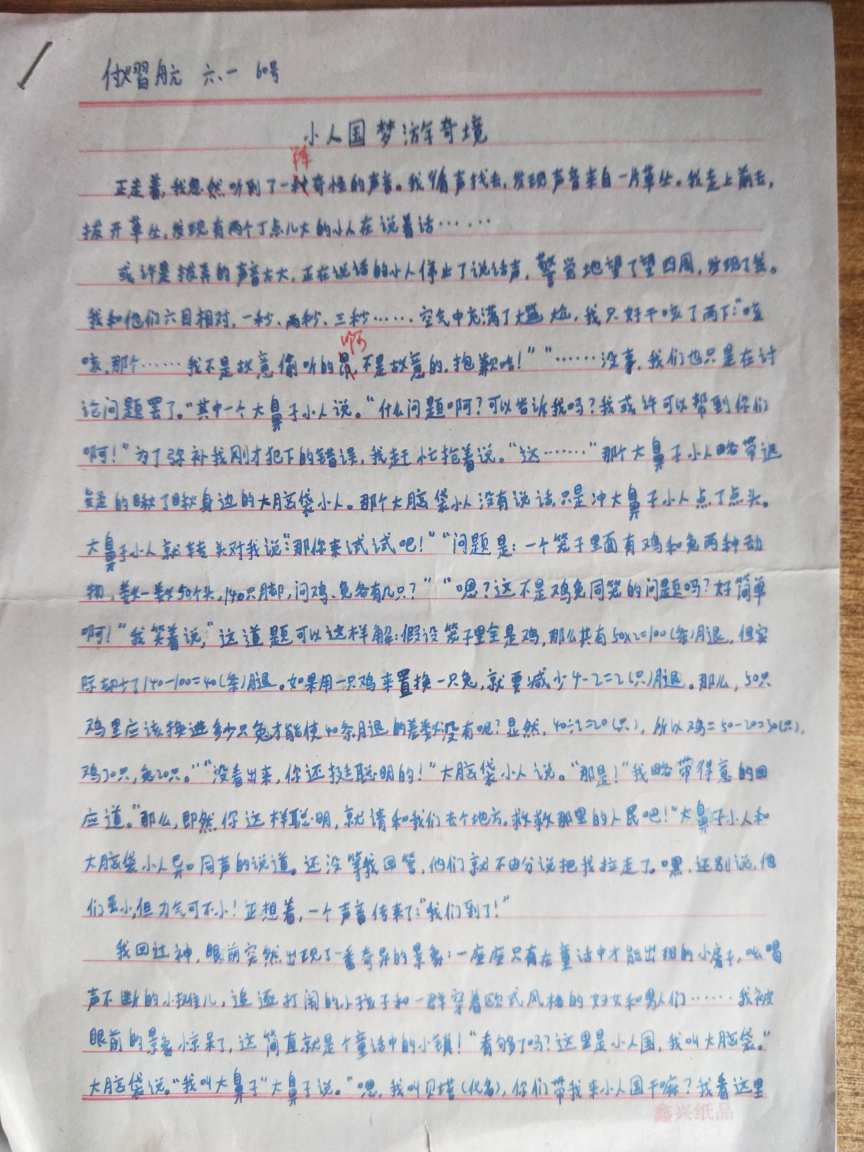 习航 六.一 60号
小人国梦游奇境
正走着,我忽然听到了一阵奇怪的声音。我循声找去,发现声音来自一片草丛。我走上前去,
拨开草丛,发现有两个丁点儿大的小人在说着话……
或许是拨弄的声音太大,正在说话的小人停止了说话声,警觉地望了望四周,发现了我。
我和他们六目相对,一秒、两秒、三秒……空气中充满了尴尬,我只好干咳了两下:“咳
咳,那个……我不是故意偷听的啊,不是故意的,抱歉哈!”“……没事,我们也只是在讨
论问题罢了。”其中一个大鼻子小人说。“什么问题啊?可以告诉我吗?我或许可以帮到你们
啊!”为了弥补我刚才犯下的错误,我赶忙抢着说。“这……”那个大鼻子小人略带迟
疑的瞅了瞅身边的大脑袋小人。那个大脑袋小人没有说话,只是冲大鼻子小人点了点头。
大鼻子小人就转头对我说:“那你来试试吧!”“问题是:一个笼子里面有鸡和兔两种动
物,数一数50个头,140只脚,问鸡、兔各有几只?”“嗯?这不是鸡兔同笼的问题吗?好简单
啊!”我笑着说,“这道题可以这样解:假设笼子里全是鸡,那么共有50×2=100(条)腿,但实
际却少了140-100=40(条)腿。如果用一只鸡来置换一只兔,就要减少4-2=2(只)腿。那么,50只
鸡里应该换进多少只兔才能使40条腿的差数没有呢?显然,40÷2=20(只),所以鸡=50-20=30(只),
鸡30只,兔20只。”“没看出来,你还挺聪明的!”大脑袋小人说。“那是!”我略带得意的回
应道。“那么,即然你这样聪明,就请和我们去个地方,救救那里的人民吧!”大鼻子小人和
大脑袋小人异口同声的说道。还没等我回答,他们就不由分说把我拉走了。嘿,还别说,他
们虽小,但力气可不小!正想着,一个声音传来了:“我们到了!”
我回过神,眼前突然出现了一番奇异的景象:一座座只有在童话中才能出现的小房子,吆喝
声不断的小摊儿,追逐打闹的小孩子和一群穿着欧式风格的妇女和男人们……我被
眼前的景象惊呆了,这简直就是个童话中的小镇!“看够了吗?这里是小人国,我叫大脑袋。”
大脑袋说。“我叫大鼻子”大鼻子说。“嗯,我叫贝塔(化名),你们带我来小人国干嘛?我看这里
鑫兴纸品